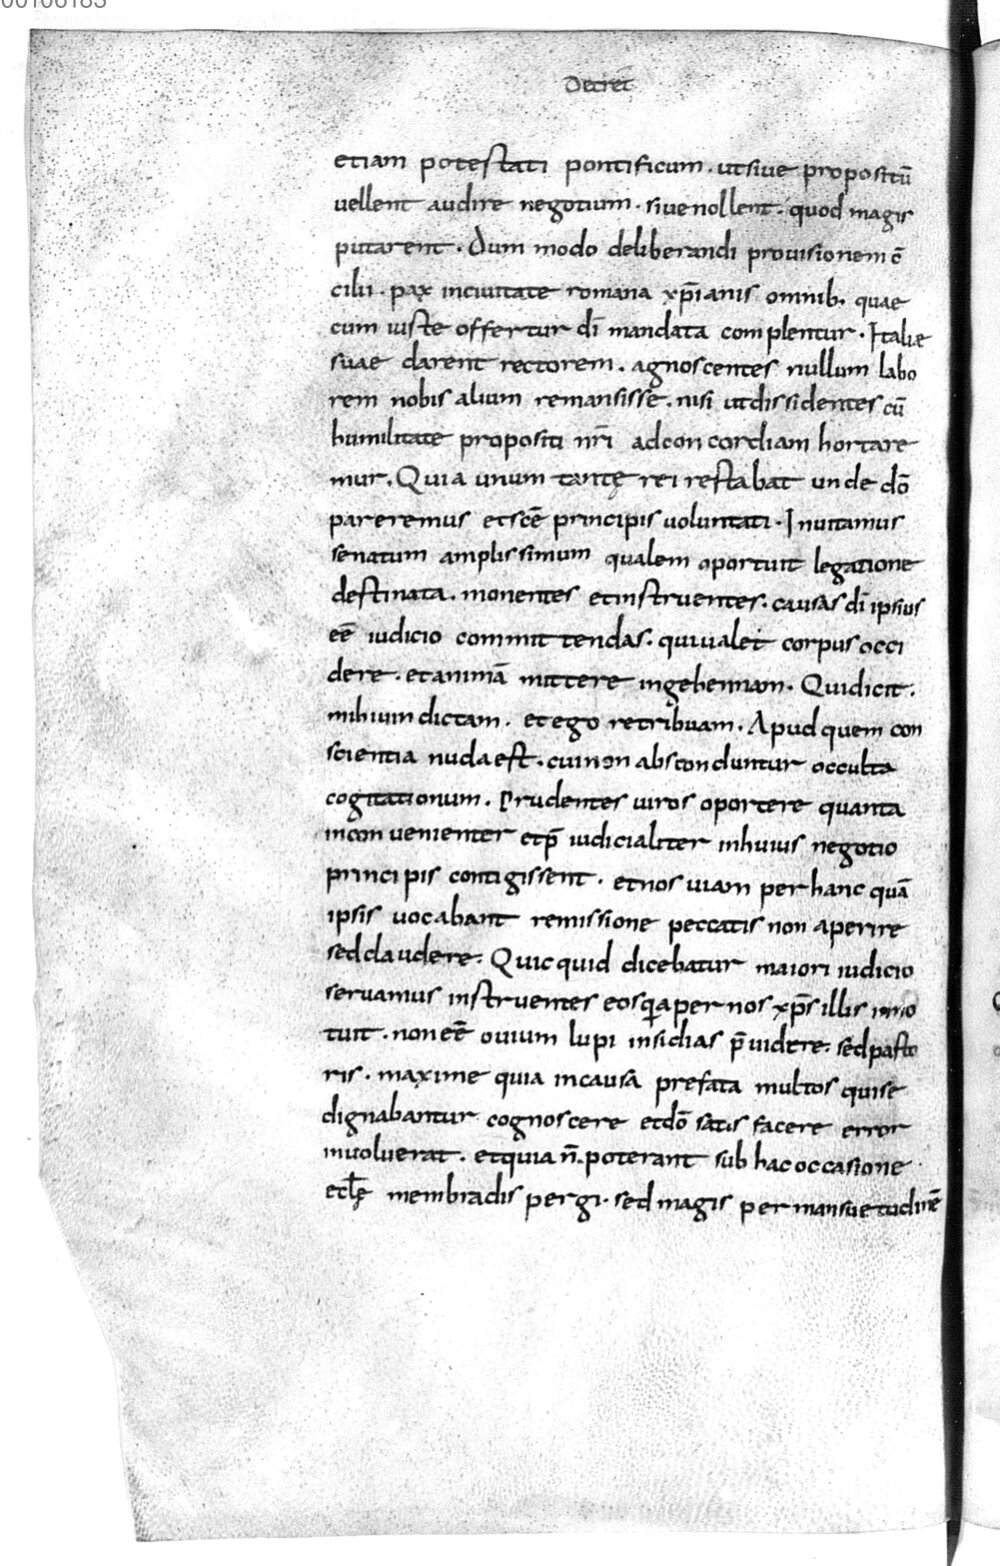 00106183
Decret̄
etiam potestati pontificum . ut siue propositū
uellent audire negotium . siue nollent . quod magis
putarent . Dum modo deliberandi prouisionem c̄
cilii . pax inciuitate romana xp̄ianis omnib. quae
cum uiste offertur dī mandata complentur . Italiæ
suae darent rectorem . agnoscentes nullum labo
rem nobis alium remansisse . nisi utdissidentes cū
humilitate propositi nr̄i adconcordiam hortare
mur . Quia unum tantę rei restabat unde dō
pareremus etscē principis uoluntati . Inuitamus
senatum amplissimum qualem oportuit legatione
destinata . monentes etinstruentes . causas dī ipsius
eē iudicio committendas . quiualet corpus occi
dere . etanimā mittere ingehennam . Quidicit .
mihiuindictam . etego retribuam . Apud quem con
scientia nudaest . cuinon absconduntur occulta
cogitationum . Prudentes uiros oportere quanta
inconuenienter etp̄ iudicialiter inhuius negotio
principis contigissent . etnos uiam perhanc quā
ipsis uocabant remissione peccatis non aperire
sedclaudere . Quicquid dicebatur maiori iudicio
seruamus instruentes eosq̨a per nos xp̄s illis inno
tuit . non eē ouium lupi insidias p̄uidere . sed pasto
ris . maxime quia incausa prefata multos quise
dignabantur cognoscere etdō satis facere error
inuoluerat . etquia n̄ . poterant sub hac occasione
eclę̄ membradispergi . sed magis per mansuetudinē